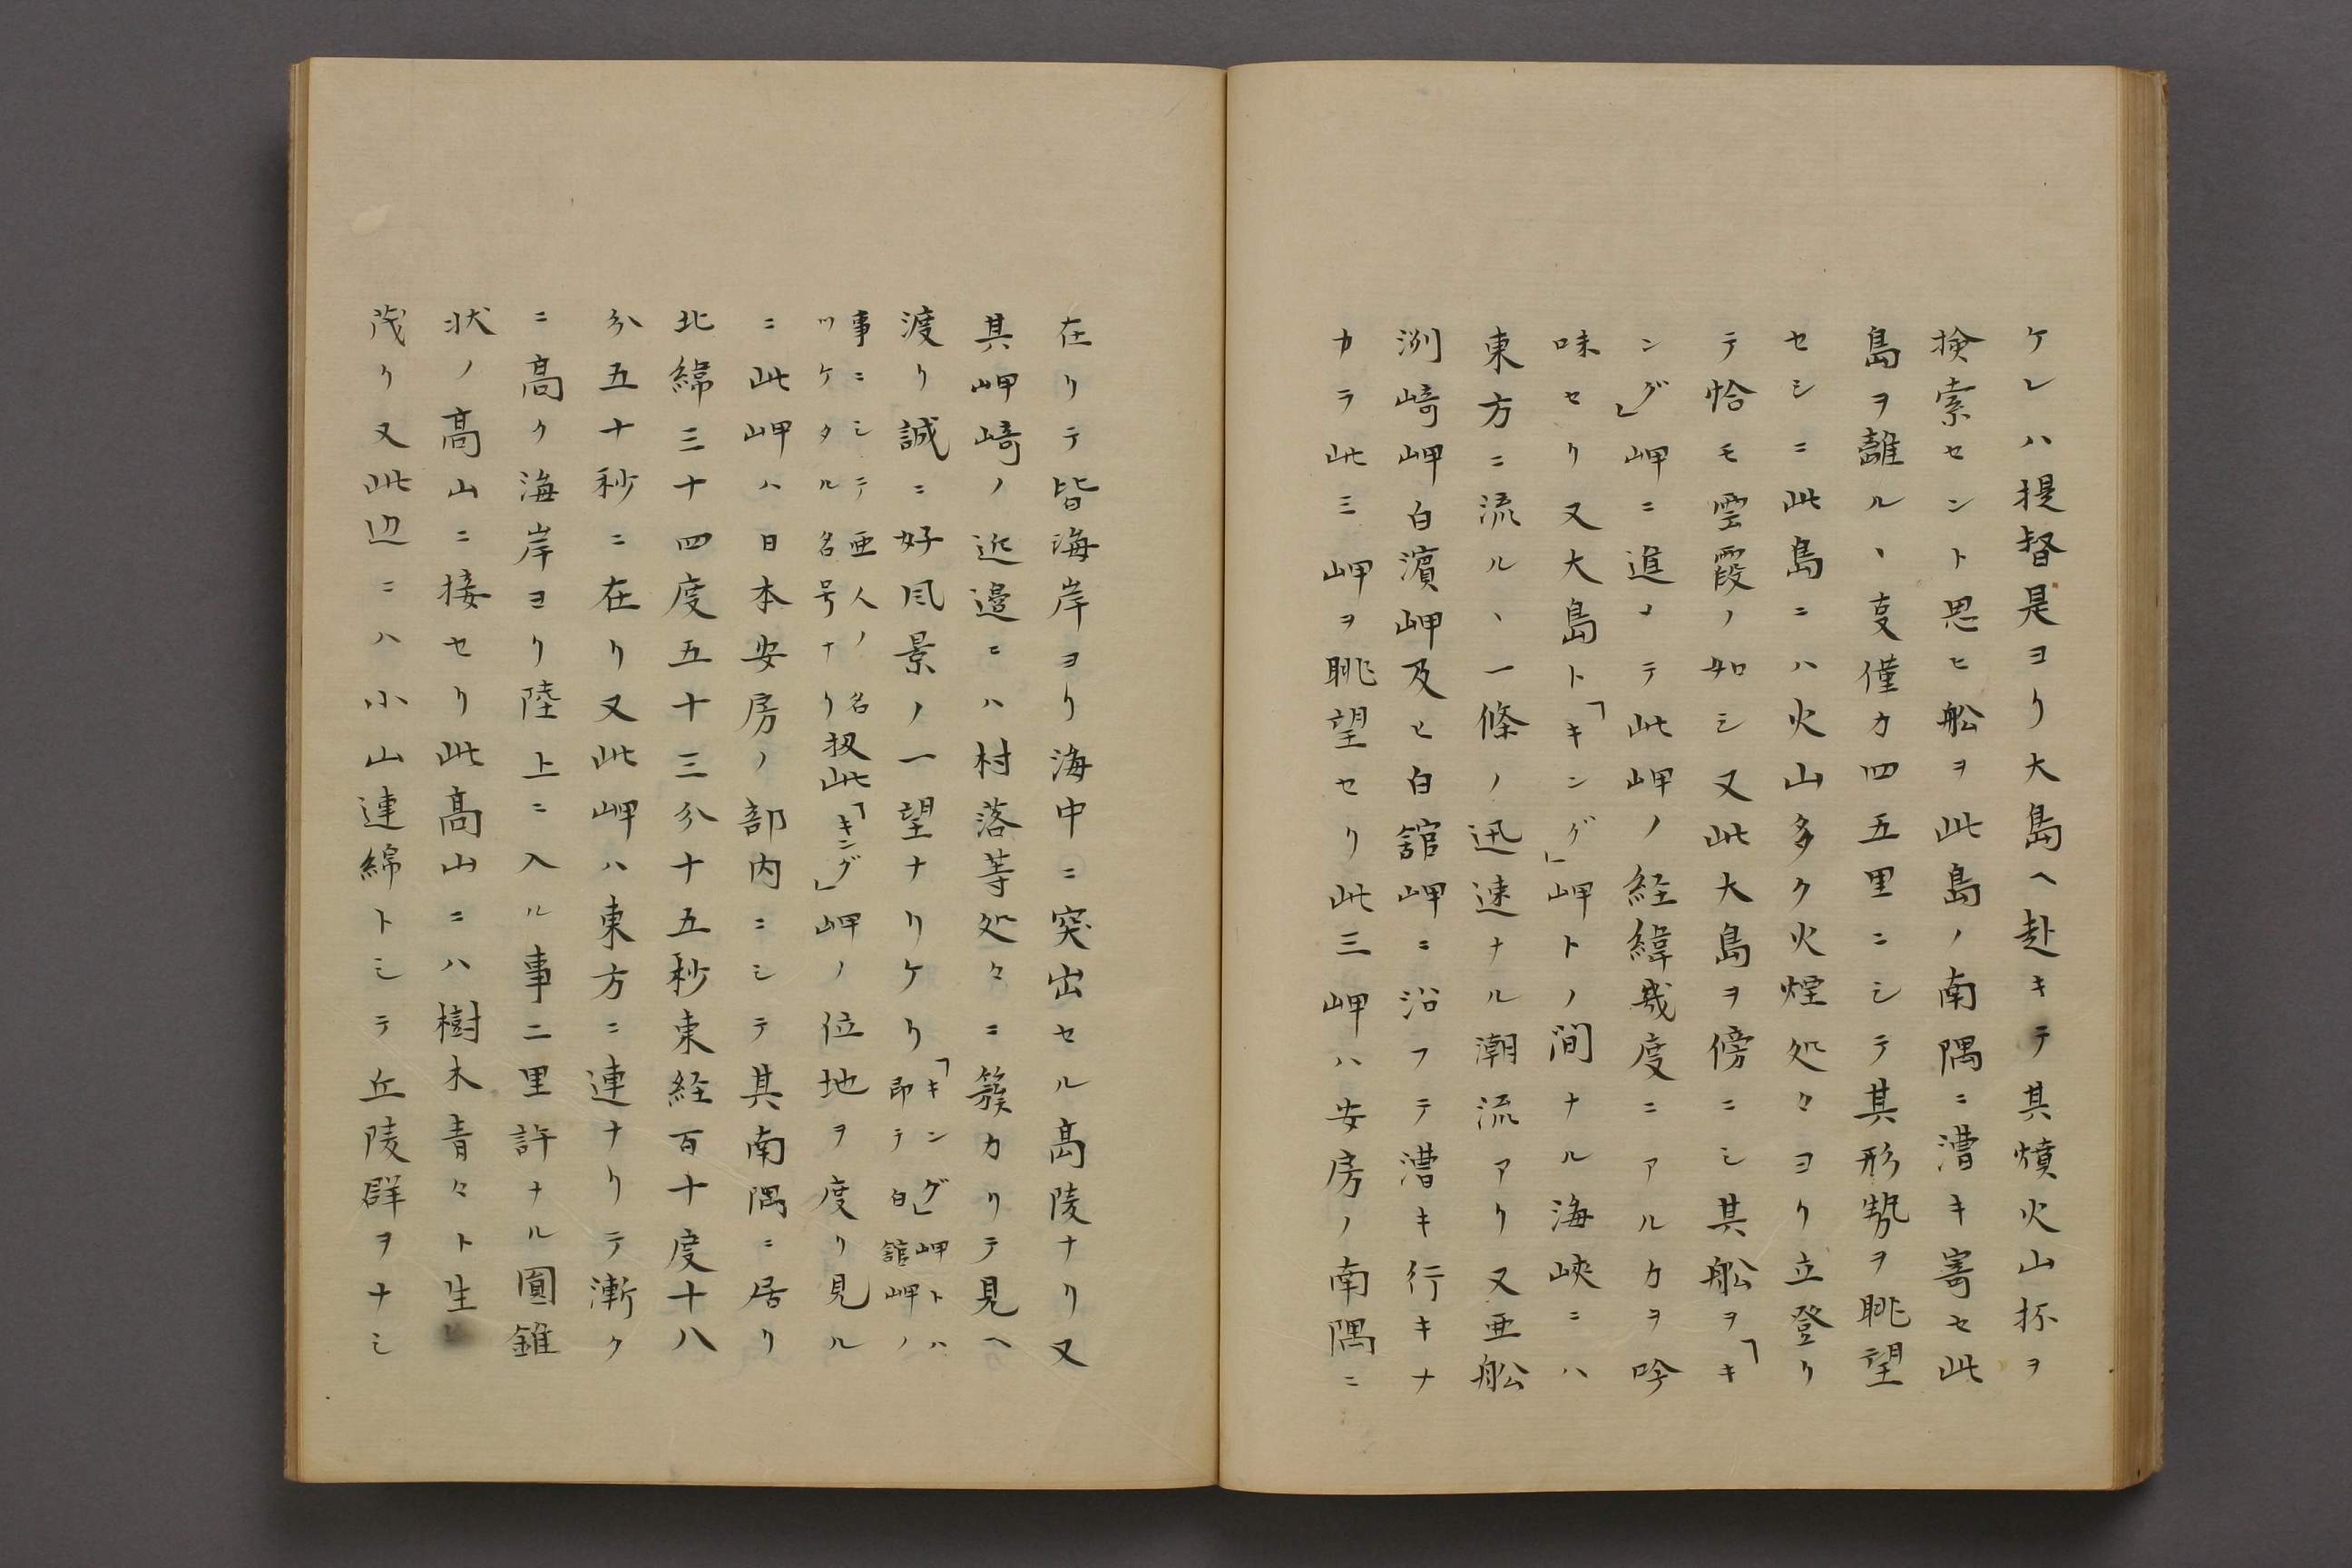 ケレハ提督是ヨリ大島ヘ赴キテ其燌火山抔ヲ
捡索セント思ヒ舩ヲ此島ノ南隅ニ漕キ寄セ此
島ヲ離ルヽ㕝僅カ四五里ニシテ其形勢ヲ眺望
セシニ此島ニハ火山多ク火煙処々ヨリ立登リ
テ恰モ雲霞ノ如シ又此大島ヲ傍ニシ其舩ヲ「キ
ング」岬ニ進メテ此岬ノ経緯幾度ニアルカヲ吟
味セリ又大島ト「キング」岬トノ間ナル海峽ニハ
東方ニ流ルヽ一條ノ迅速ナル潮流アリ又亜舩
洌﨑岬白濵岬及ヒ白舘岬ニ沿フテ漕キ行キナ
カラ此三岬ヲ眺望セリ此三岬ハ安房ノ南隅ニ
在リテ皆海岸ヨリ海中ニ突出セル髙陵ナリ又
其岬﨑ノ近邉ニハ村落等処々ニ簇カリテ見ヘ
渡リ誠ニ好風景ノ一望ナリケリ「キング」岬トハ即チ白舘岬ノ
事ニシテ亜人ノ名ツケタル名号ナリ扨此「キング」岬ノ位地ヲ度リ見ル
ニ此岬ハ日本安房ノ部内ニシテ其南隅ニ居リ
北緯三十四度五十三分十五秒東経百十度十八
分五十秒ニ在リ又此岬ハ東方ニ連ナリテ漸ク
ニ髙ク海岸ヨリ陸上ニ入ル事二里許ナル圓錐
状ノ髙山ニ接セリ此髙山ニハ樹木青々ト生
茂リ又此辺ニハ小山連綿トシテ丘陵群ヲナシ